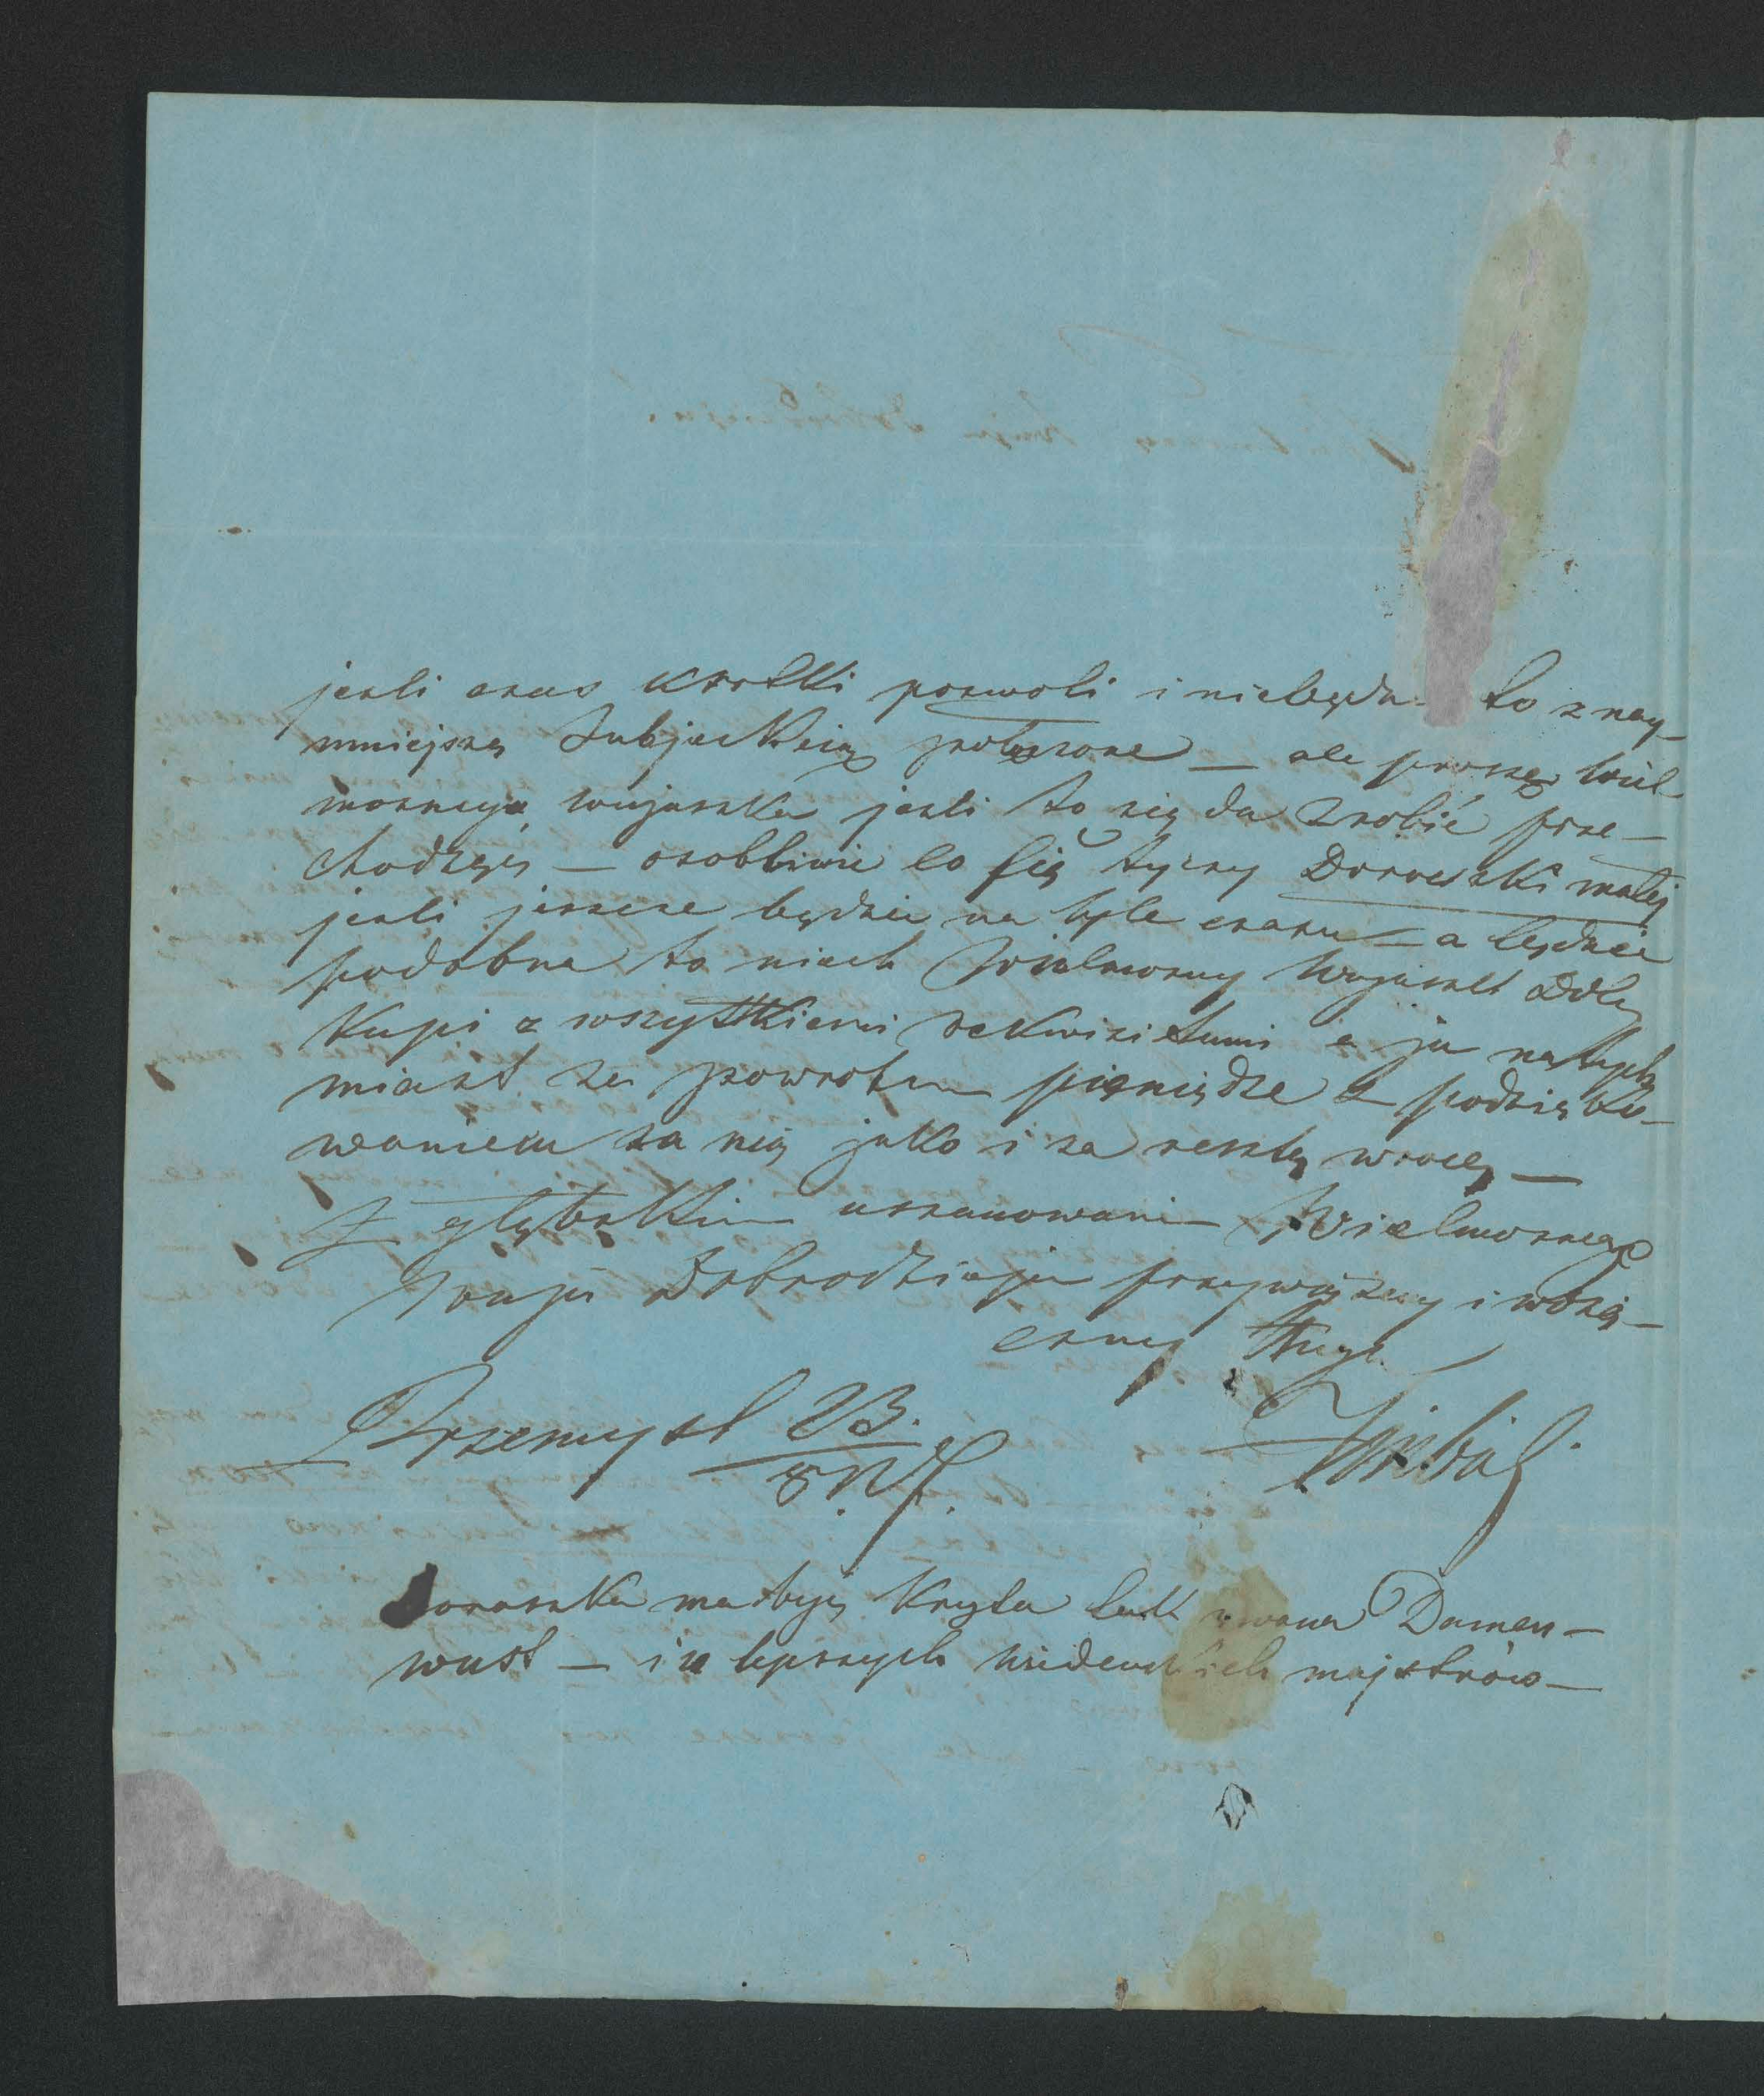 jeśli czas krotki pozwoli i niebędzie to z nay-
mniejszą Subjekcią połączone — ale proszę Wiel
możnego wujaszka jeśli to się da zrobić prze-
chodzący — osobliwie co się tyczy Doroszki małej
jeśli jeszcze będzie na tyle czasu — a będzie
podobna to niech Wielmożny Wujaszek Ddzy
Kupi z wszytkiemi rekwizietami a ja natych
miast za powrotem pieniądze z podzięko-
waniem za nią jako i za resztę wrocę —
Z głębokim uszanowaniem Wielmożnego
Wuja Dobrodzieja przywiązany i wdzię-
czny Sługa
Przemysl 23.
8 N.
Doroszka ma byś Kryta tak zwana Damen-
wust — i u lepszych wiedeńskich majstrów —